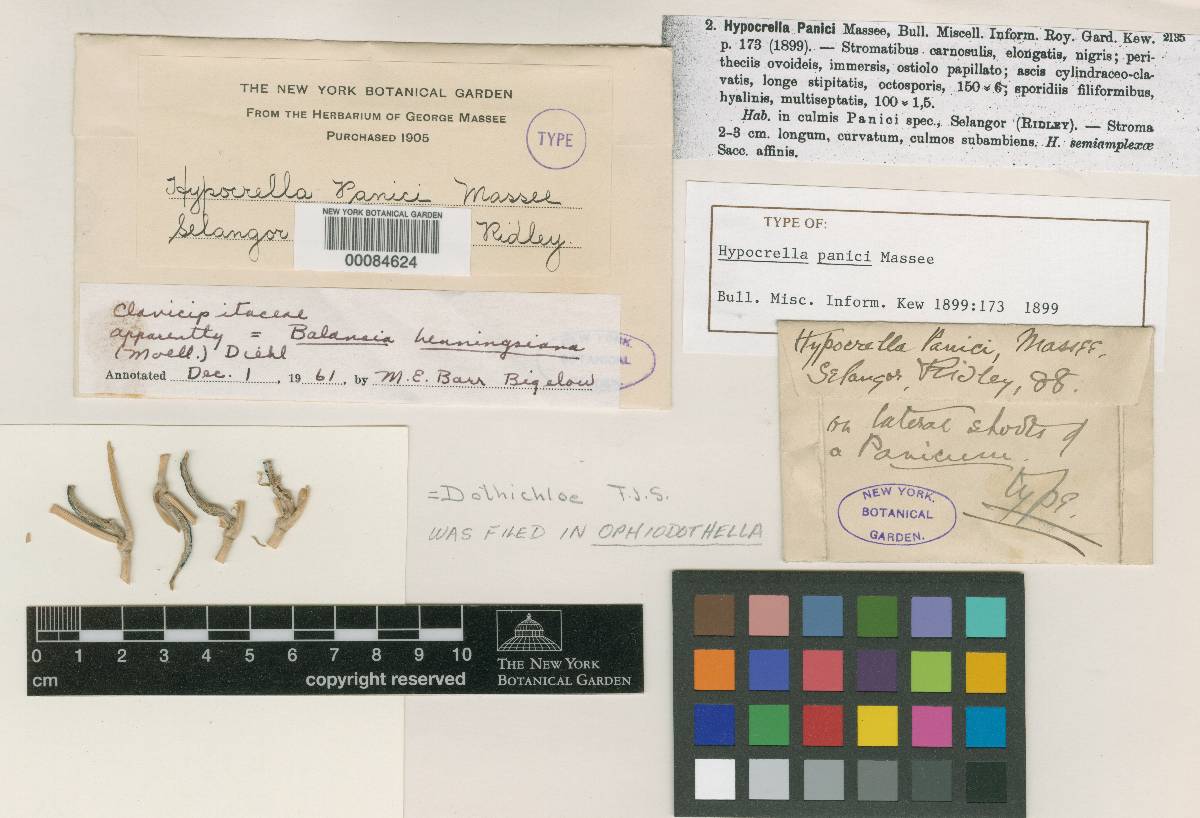 THE NEW YORK BOTANICAL GARDEN
FROM THE HERBARIUM OF GEORGE MASSEE
PURCHASED 1905
TYPE
Hypocrella Panici Massee
Selangor Ridley.
NEW YORK BOTANICAL GARDEN
00084624
Clavicipitaceae
apparently = Balansia henningsiana
(Moell.) Diehl
Annotated Dec. 1, 1961, by M.E. Barr Bigelow
2. Hypocrella Panici Massee, Bull. Miscell. Inform. Roy. Gard. Kew. 2135
p. 173 (1899). — Stromatibus carnosulis, elongatis, nigris; peri-
theciis ovoideis, immersis, ostiolo papillato; ascis cylindraceo-cla-
vatis, longe stipitatis, octosporis, 150 ≈ 6; sporidiis filiformibus,
hyalinis, multiseptatis, 100 ≈ 1,5.
Hab. in culmis Panici spec., Selangor (RIDLEY). — Stroma
2-3 cm. longum, curvatum, culmos subambiens. H. semiamplexæ
Sacc. affinis.
TYPE OF:
Hypocrella panici Massee
Bull. Misc. Inform. Kew 1899:173 1899
Hypocrella Panici, Massee.
Selangor, Ridley, 98.
on lateral shoots of
a Panicum.
type.
NEW YORK.
BOTANICAL
GARDEN.
=Dothichloe T.J.S.
WAS FILED IN OPHIODOTHELLA
0 1 2 3 4 5 6 7 8 9 10
cm
copyright reserved
THE NEW YORK
BOTANICAL GARDEN